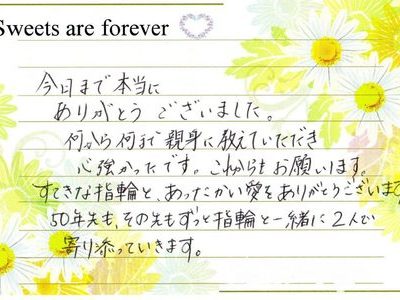 Sweets are forever
今日まで本当に
ありがとう ございました。
何から何まで親身に教えていただき
心強かったです。これからもお願います。
すてきな指輪と、あったかい愛をありがとうございます
50年先も、その先もずっと指輪と一緒に2人で
寄り添っていきます。